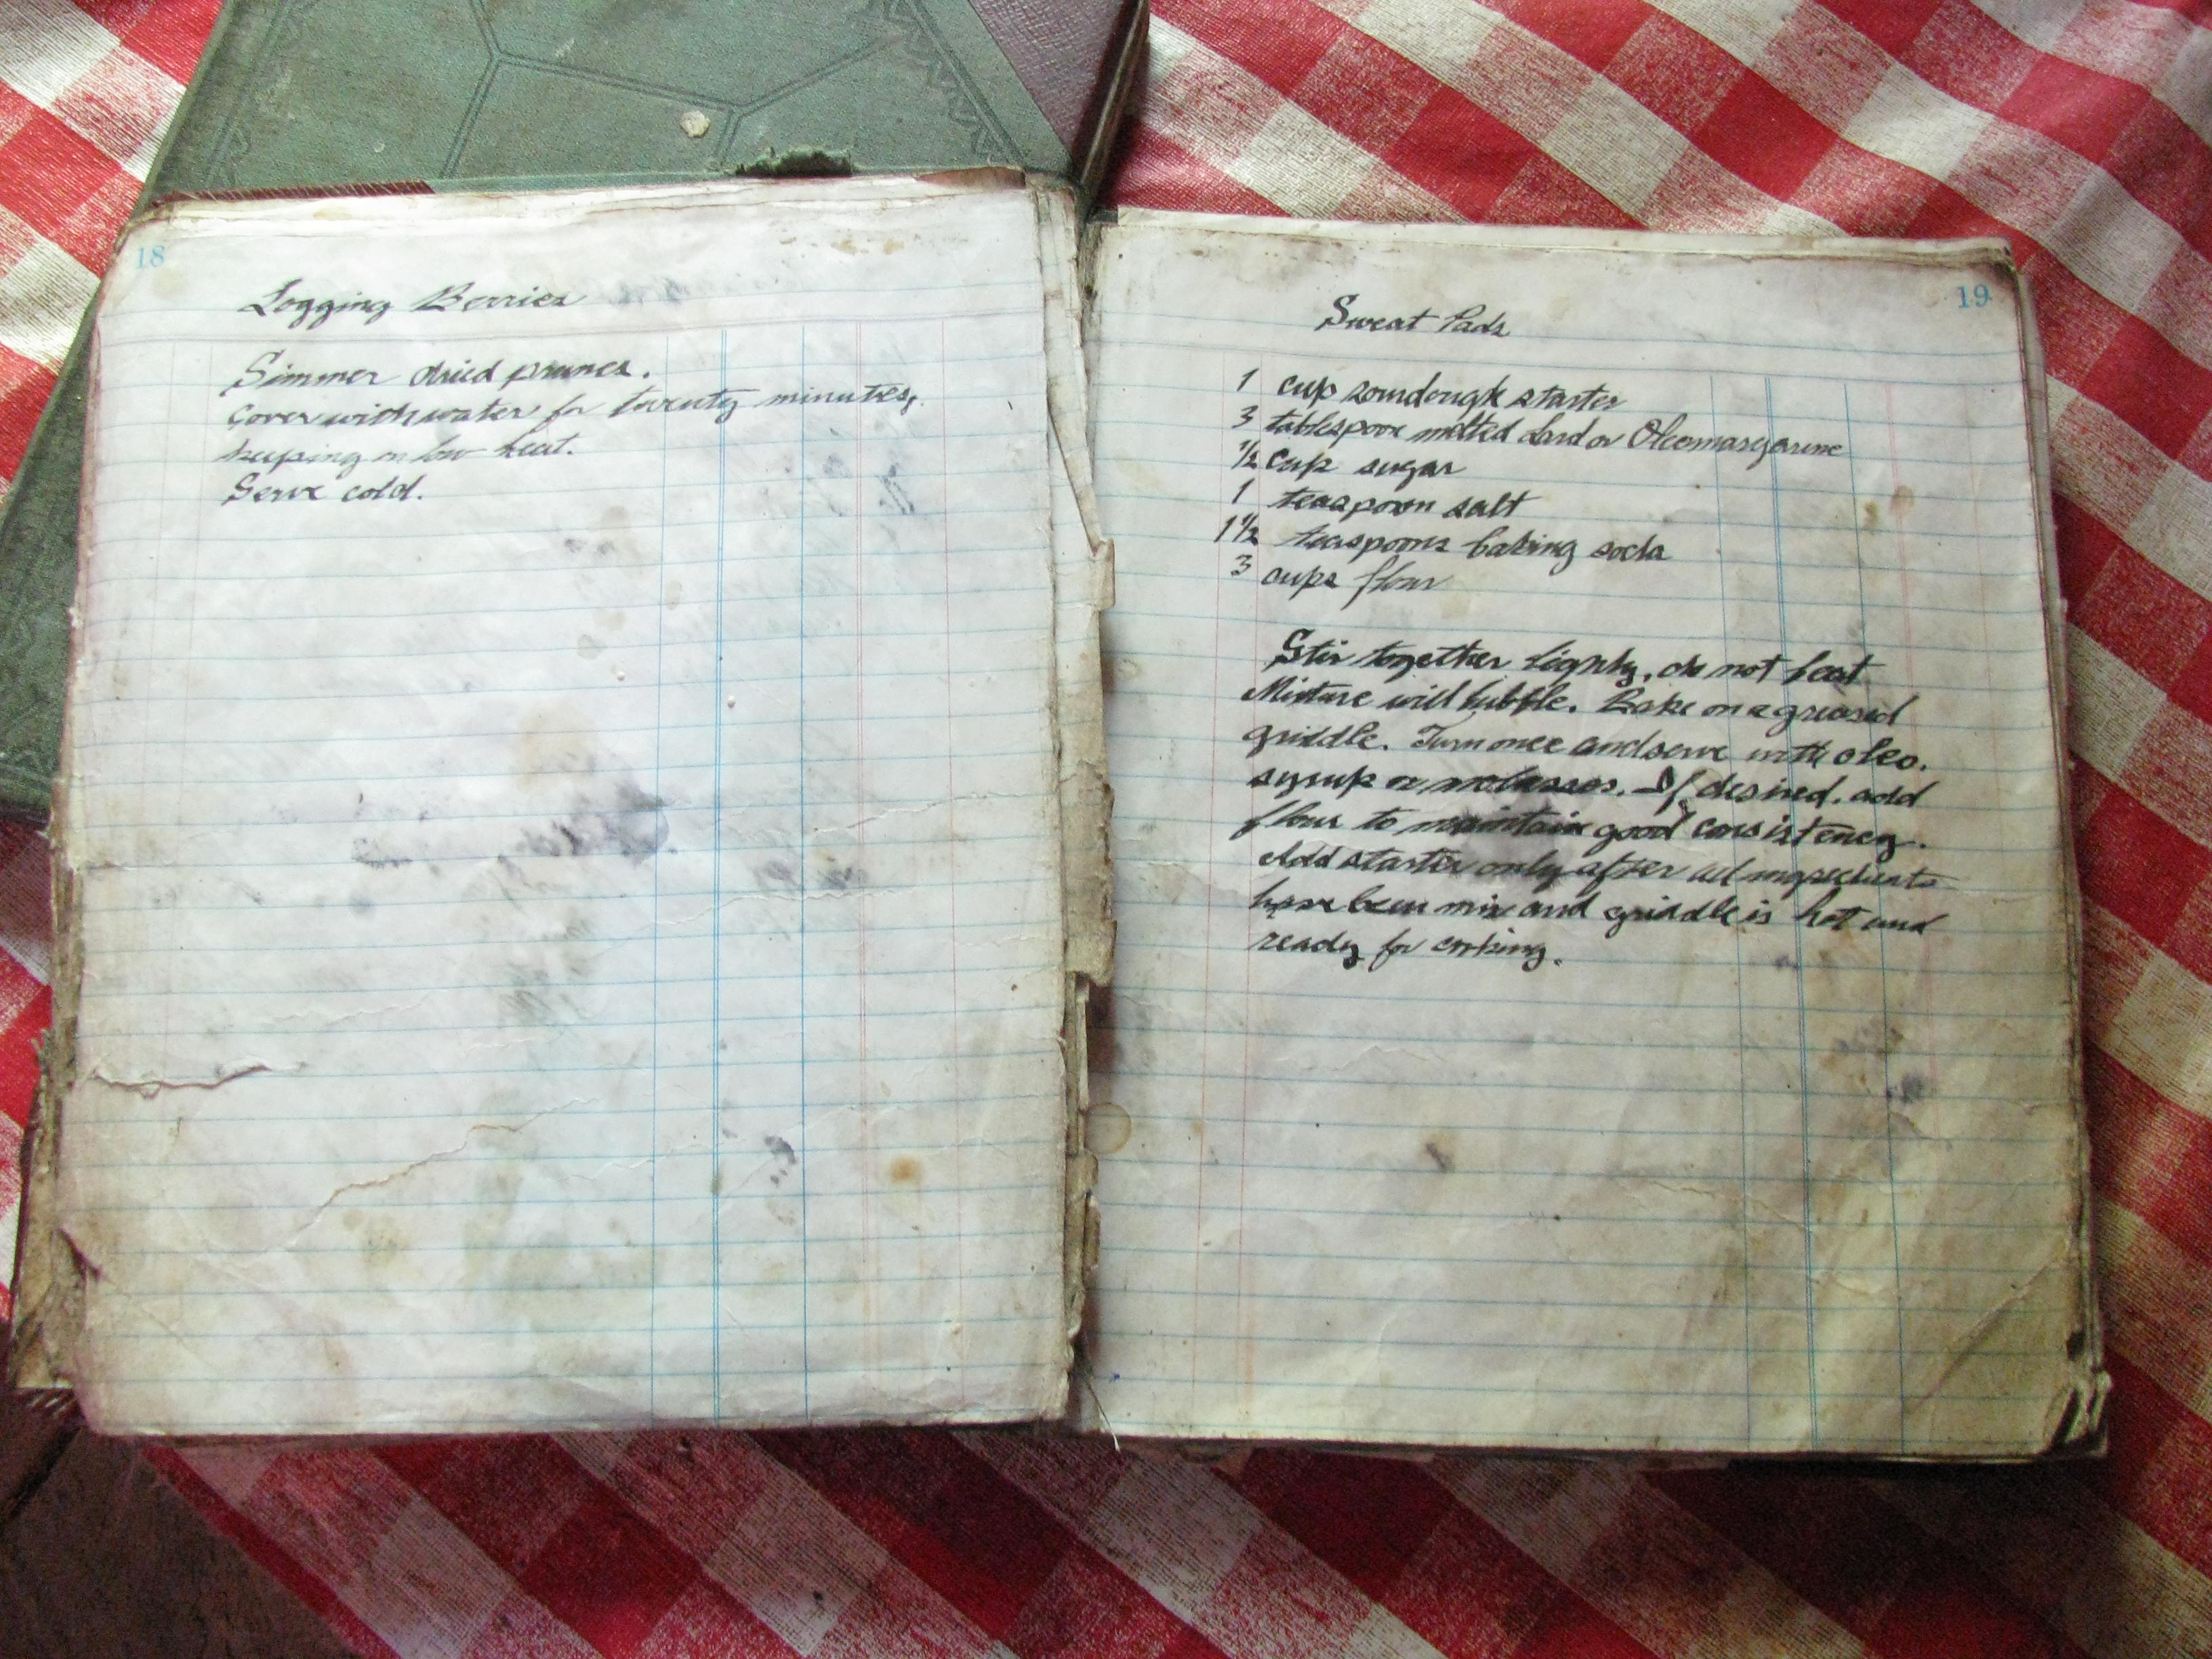 18
Logging Berries
Simmer dried prunes.
Cover with water for twenty minutes,
keeping on low heat.
Serve cold.
19
Sweat Pads
1 cup sourdough starter
3 tablespoon melted Lard or Oleomargarine
1/2 cup sugar
1 teaspoon salt
1 1/2 teaspoons baking soda
3 cups flour
Stir together lightly, do not beat
Mixture will bubble. Bake on a greased
griddle. Turn once and serve with oleo.
syrup or molasses. If desired, add
flour to maintain good consistency.
Add starter only after all ingredients
have been mix and griddle is hot and
ready for cooking.